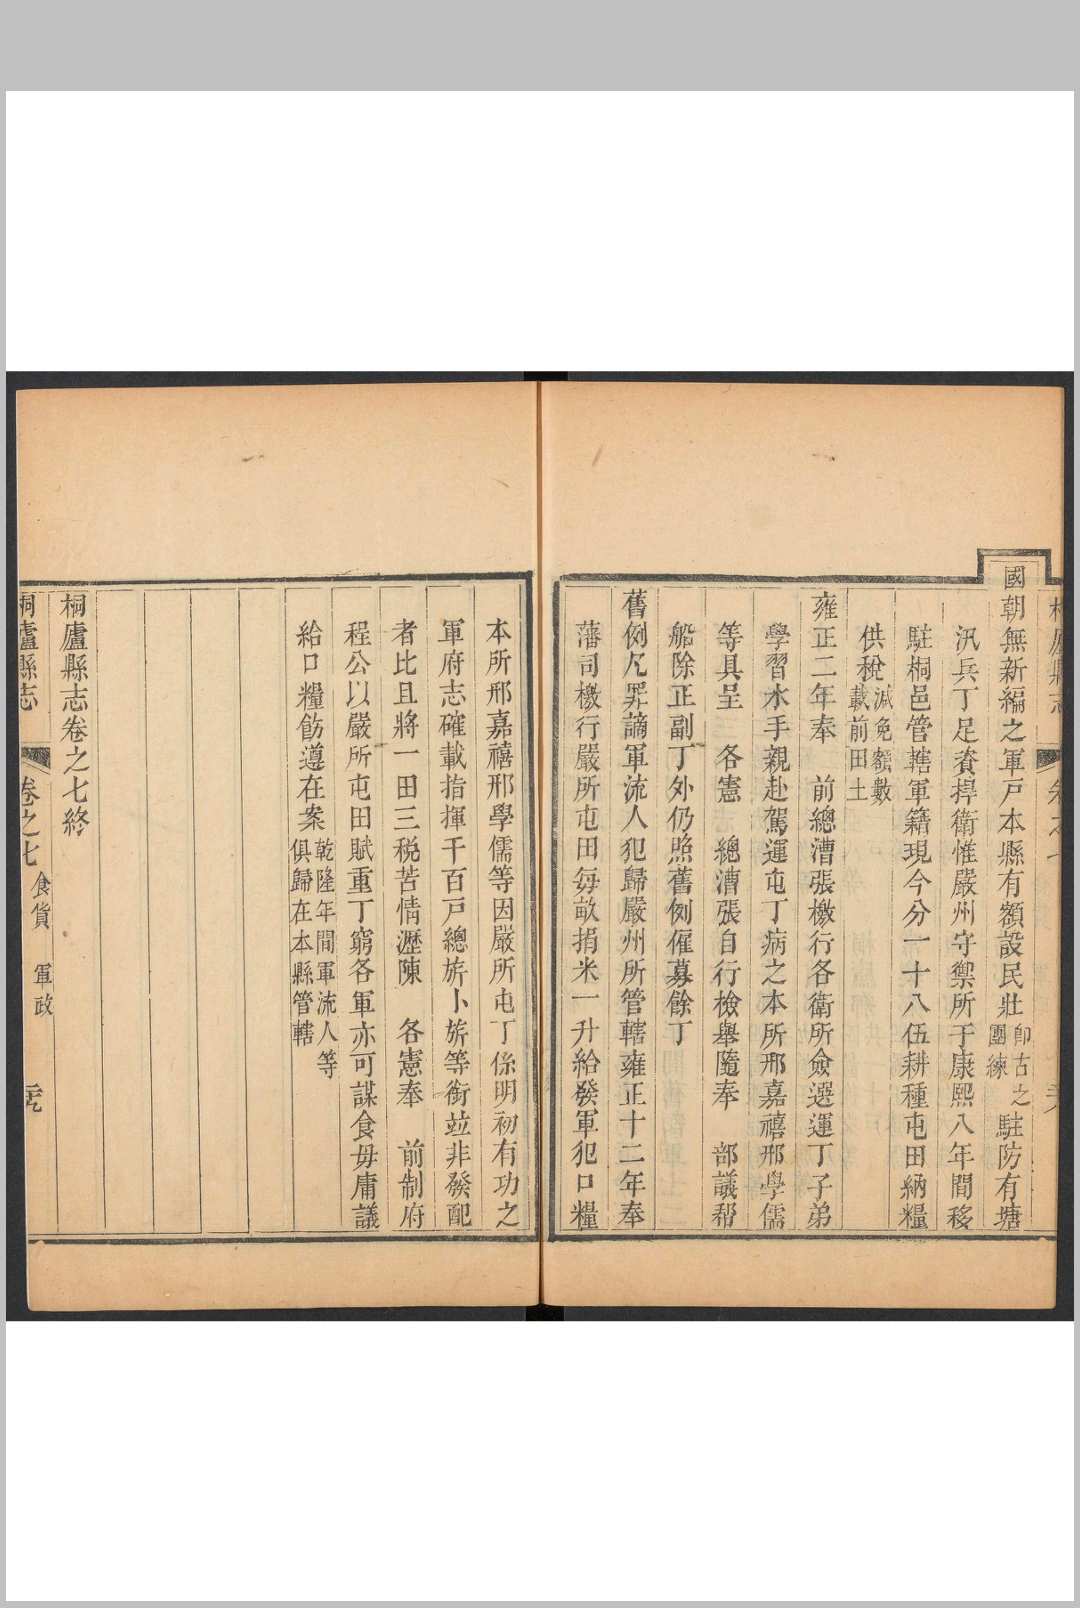 國朝無新編之軍戸本縣有額設民壯卽古之團練駐防有塘
汛兵丁足資捍衛惟嚴州守禦所于康熙八年間移
駐桐邑管轄軍籍現今分一十八伍耕種屯田納糧
供稅減免額數載前田土
雍正二年奉　前總漕張檄行各衛所僉選運丁子弟
學習水手親赴駕運屯丁病之本所邢嘉禧邢學儒
等具呈　各憲　總漕張自行檢舉隨奉　部議帮
船除正副丁外仍照舊例僱募餘丁
舊例凡罪謫軍流人犯歸嚴州所管轄雍正十二年奉
藩司檄行嚴所屯田每畝捐米一升給發軍犯口糧
本所邢嘉禧邢學儒等因嚴所屯丁係明初有功之
軍府志確載指揮千百戸總旂小旂等銜竝非發配
者比且將一田三稅苦情瀝陳　各憲奉　前制府
程公以嚴所屯田賦重丁窮各軍亦可謀食毋庸議
給口糧飭遵在案乾隆年間軍流人等俱歸在本縣管轄
桐廬縣志卷之七終
桐廬縣志　卷之七　食貨　軍政